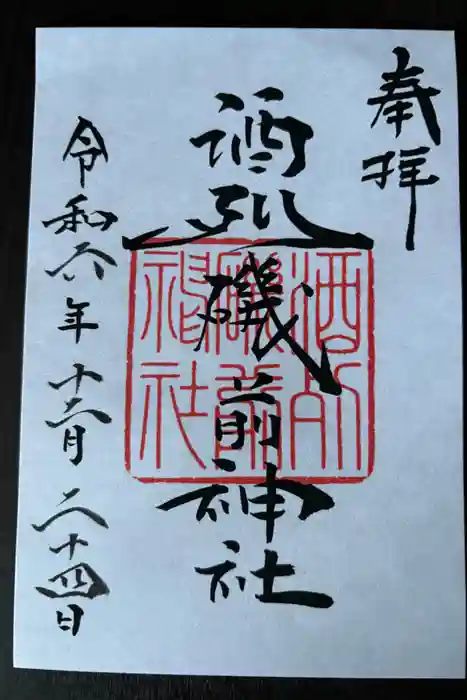 奉拝
酒列磯前神社
酒列磯前神社
令和六年十二月二十四日